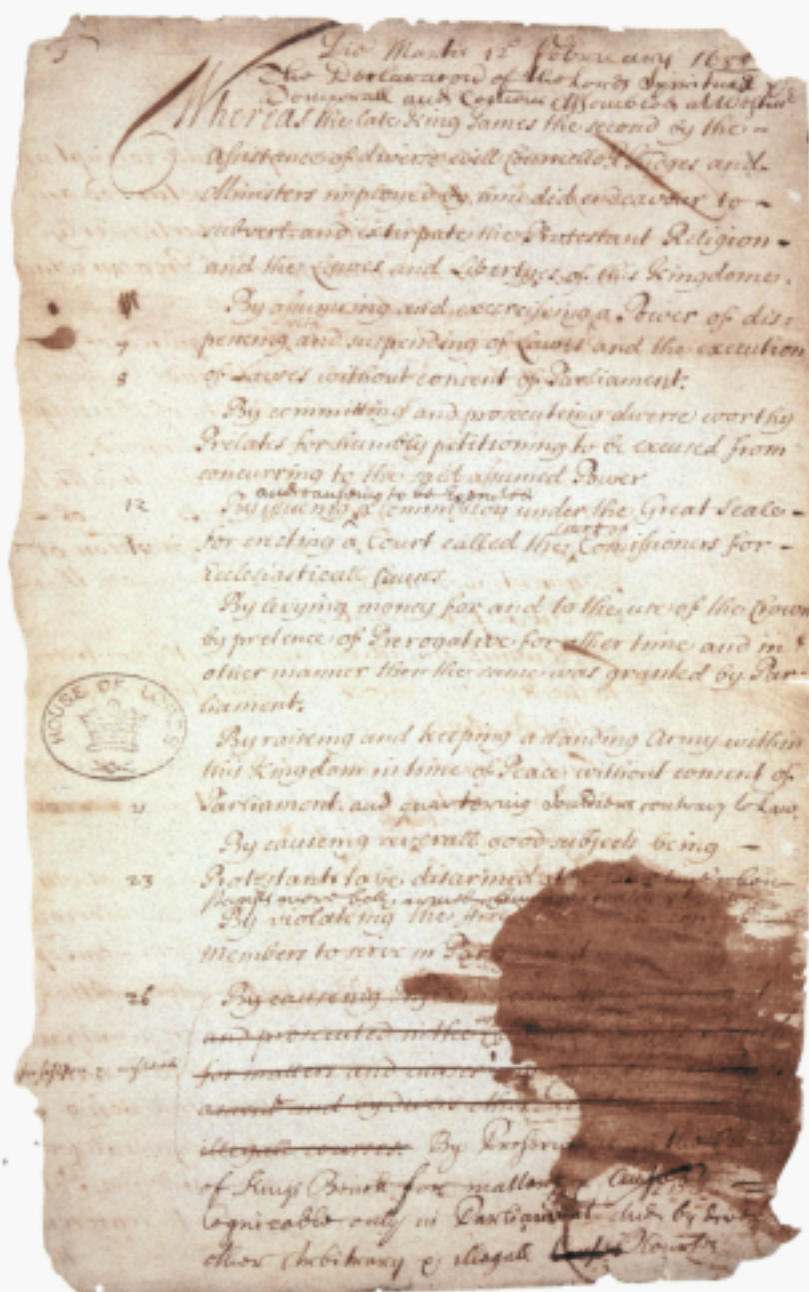 Die Martis 12º February 1688
The Declaration of the Lords Spirituall &
Temporall and Comons Assembled at Westmr
Whereas the late King James the second by the -
Assistance of diverse evill Councellors Judges and
Ministers imployed by him did endeavour to -
subvert and extirpate the Protestant Religion -
and the Lawes and Libertyes of this Kingdome.
By assuming and exerciseing a Power of dis-
7 penceing with and suspending of Lawes and the execution
8 of Lawes without consent of Parliament.
By committing and prosecuting diverse worthy
Prelates for humbly petitioning to be excused from
concurring to the said assumed Power
and causing to be Executed
12 By issueing a Commission under the Great Seale -
Court of
for erecting a Court called the Comissioners for -
Ecclesiasticall Causes
By levying money for and to the use of the Crown
by pretence of Prerogative for other time and in
other manner then the same was granted by Par-
liament.
HOUSE OF LORDS
By raiseing and keeping a standing Army within
this Kingdom in time of Peace without consent of
21 Parliament and quartering Souldiers contrary to Law
By causeing severall good subjects being -
23 Protestants to be disarmed at
By violateing the
Members to serve in Parliament
26 By causeing
and prosecuted in the
for matters and causes
and by divers other
illegall courses. By Prosecut the
of Kings Bench for matters & Causes
Cognizable only in Parliament and by divers
other Arbitrary & illegall Courses